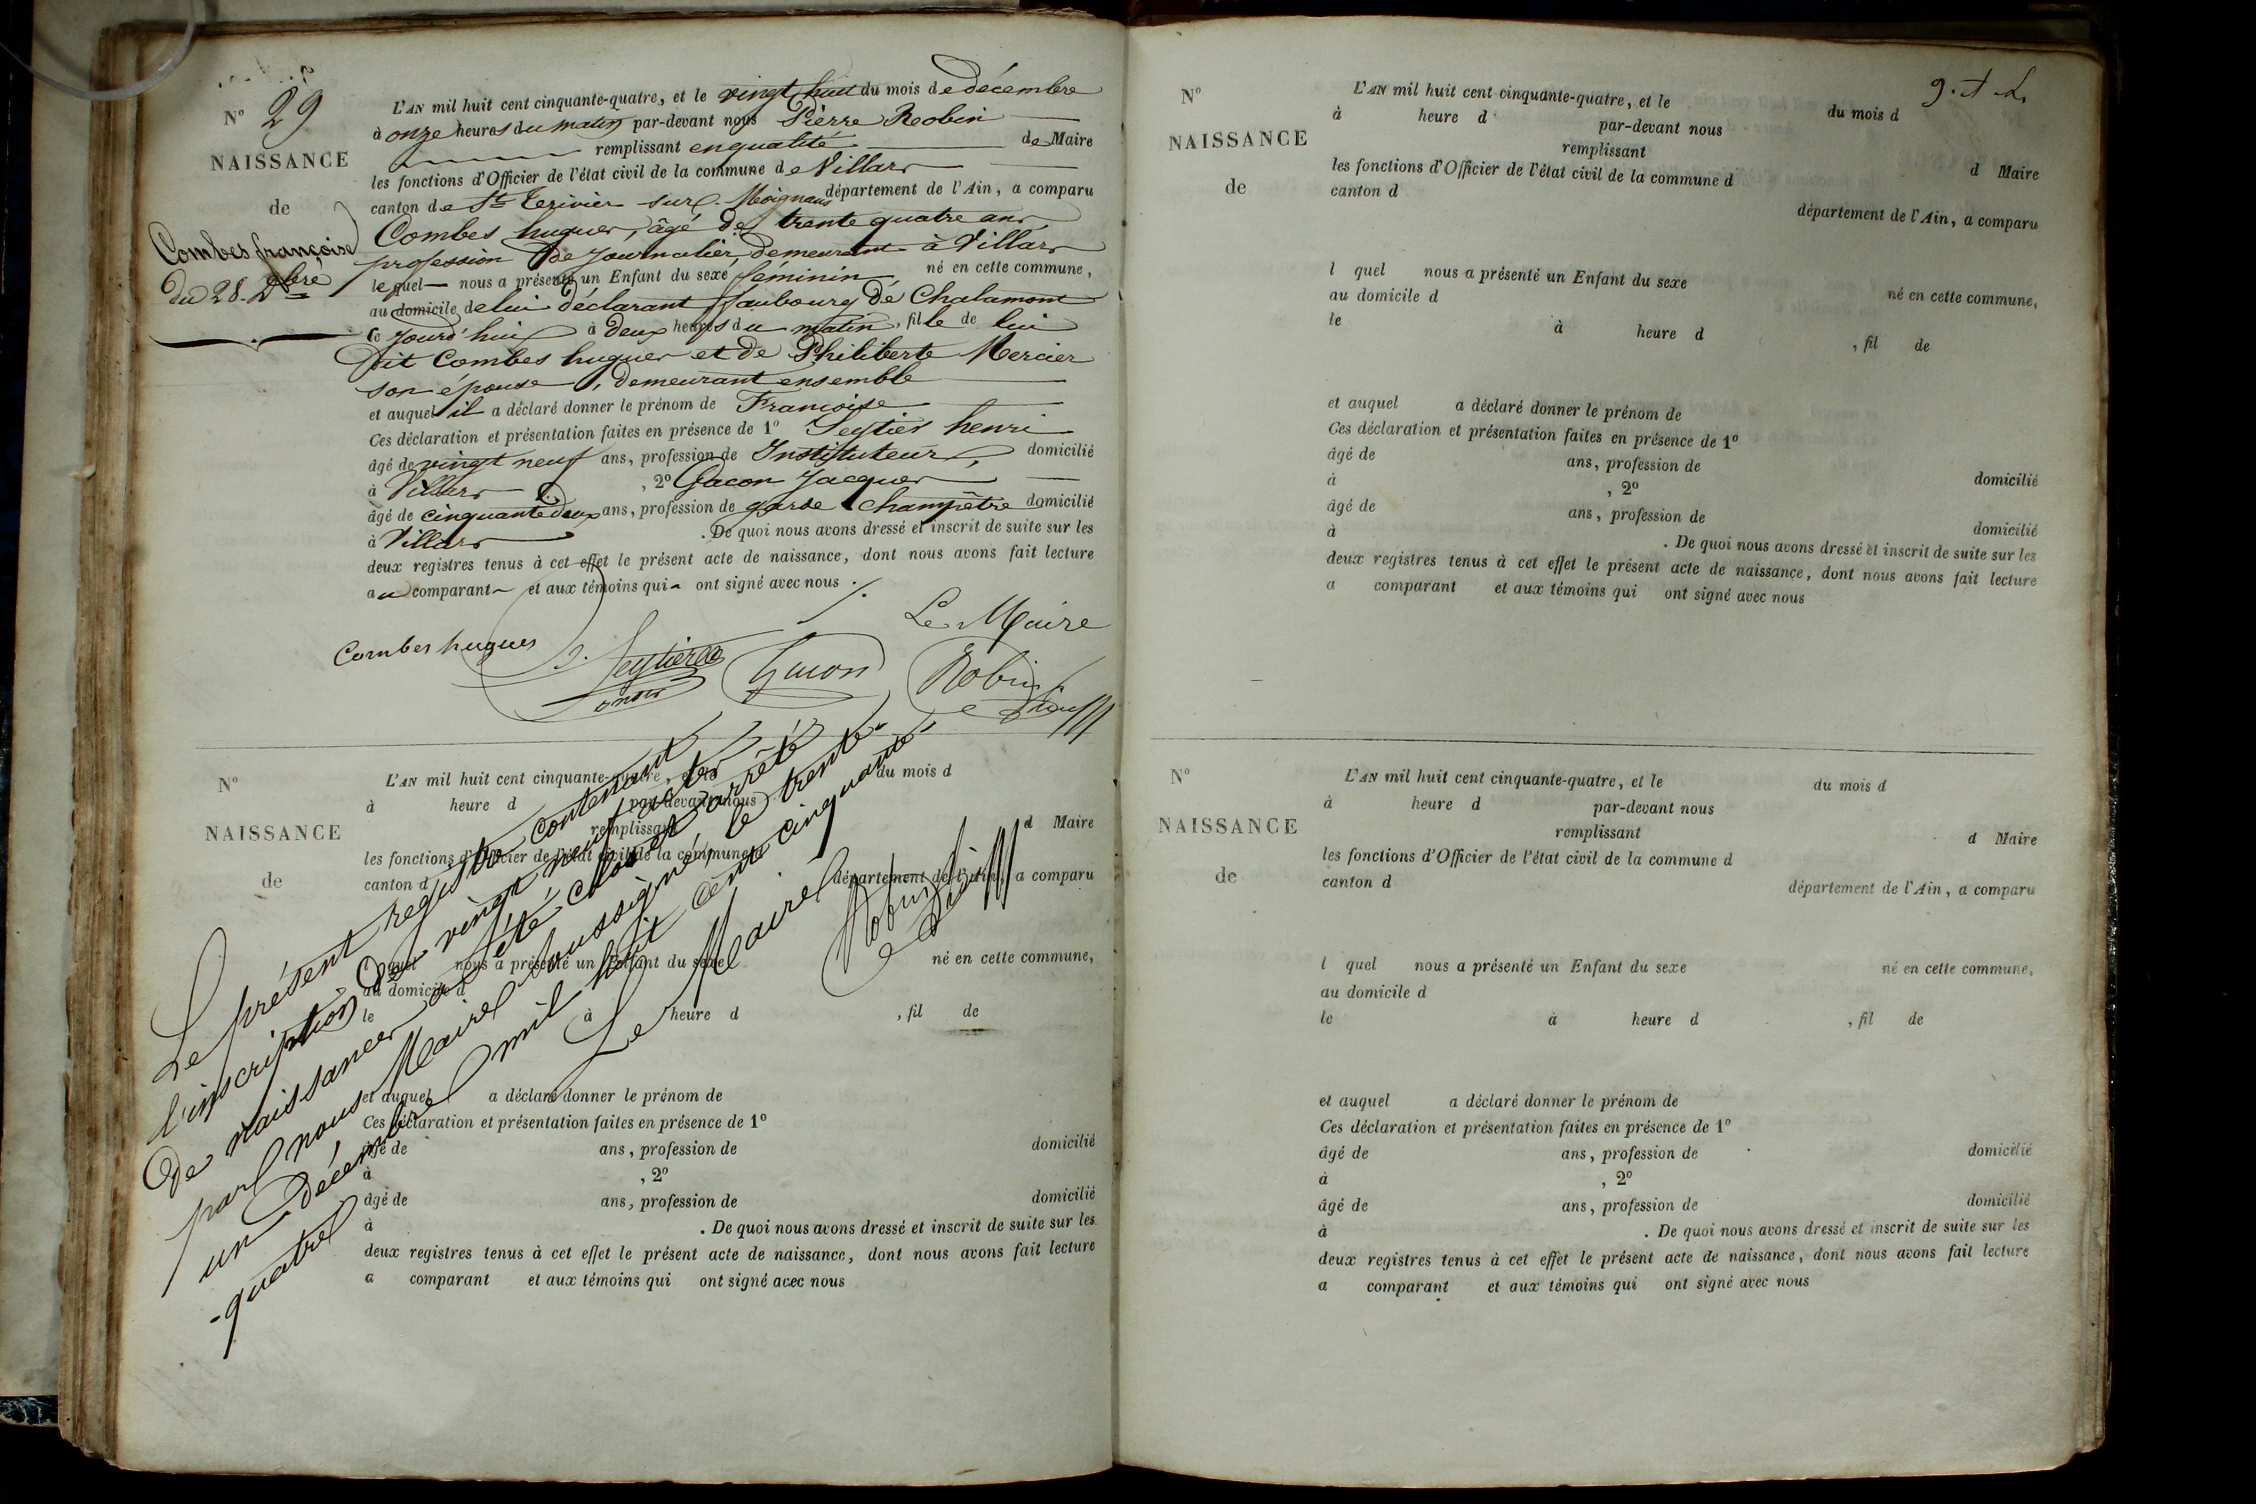 N° 29
NAISSANCE
de
Combes françoise
du 28. Xbre
L'AN mil huit cent cinquante-quatre, et le vingt huit du mois de décembre
à onze heures du matin par-devant nous Pierre Robin
remplissant en qualité de Maire
les fonctions d'Officier de l'état civil de la commune de Villars
canton de St Trivier sur Moignans département de l'Ain, a comparu
Combes hugues, âgé de trente quatre ans
profession de journalier, demeurant à Villars
lequel nous a présenté un Enfant du sexe féminin né en cette commune,
au domicile de lui déclarant faubourg de Chalamont
le jourd'hui à deux heures du matin, fille de lui
Dit Combes hugues et de Philiberte Mercier
son épouse, demeurant ensemble
et auquel il a déclaré donner le prénom de Françoise
Ces déclaration et présentation faites en présence de 1° Seytier henri
âgé de vingt neuf ans, profession de Instituteur, domicilié
à Villars , 2° Gacon Jacques
âgé de cinquante deux ans, profession de garde champêtre domicilié
à Villars . De quoi nous avons dressé et inscrit de suite sur les
deux registres tenus à cet effet le présent acte de naissance, dont nous avons fait lecture
au comparant et aux témoins qui ont signé avec nous ./.
Le Maire
Combes hugues Seytier Gacon Robin
N°
NAISSANCE
de
L'AN mil huit cent cinquante-quatre, et le du mois d
à heure d par-devant nous
remplissant d Maire
les fonctions d'Officier de l'état civil de la commune d
canton d département de l'Ain, a comparu
l quel nous a présenté un Enfant du sexe né en cette commune,
au domicile d
le à heure d , fil de
et auquel a déclaré donner le prénom de
Ces déclaration et présentation faites en présence de 1°
âgé de ans, profession de domicilié
à , 2°
âgé de ans, profession de domicilié
à . De quoi nous avons dressé et inscrit de suite sur les
deux registres tenus à cet effet le présent acte de naissance, dont nous avons fait lecture
a comparant et aux témoins qui ont signé avec nous
Le présent registre contenant
l'inscription de vingt neuf actes
de naissances a été clos et arrêté
par nous Maire soussigné, le trente
un Décembre mil huit cent cinquante
-quatre
Le Maire
Robin
N°
NAISSANCE
de
L'AN mil huit cent cinquante-quatre, et le du mois d
à heure d par-devant nous
remplissant d Maire
les fonctions d'Officier de l'état civil de la commune d
canton d département de l'Ain, a comparu
l quel nous a présenté un Enfant du sexe né en cette commune,
au domicile d
le à heure d , fil de
et auquel a déclaré donner le prénom de
Ces déclaration et présentation faites en présence de 1°
âgé de ans, profession de domicilié
à , 2°
âgé de ans, profession de domicilié
à . De quoi nous avons dressé et inscrit de suite sur les
deux registres tenus à cet effet le présent acte de naissance, dont nous avons fait lecture
a comparant et aux témoins qui ont signé avec nous
N°
NAISSANCE
de
L'AN mil huit cent cinquante-quatre, et le du mois d
à heure d par-devant nous
remplissant d Maire
les fonctions d'Officier de l'état civil de la commune d
canton d département de l'Ain, a comparu
l quel nous a présenté un Enfant du sexe né en cette commune,
au domicile d
le à heure d , fil de
et auquel a déclaré donner le prénom de
Ces déclaration et présentation faites en présence de 1°
âgé de ans, profession de domicilié
à , 2°
âgé de ans, profession de domicilié
à . De quoi nous avons dressé et inscrit de suite sur les
deux registres tenus à cet effet le présent acte de naissance, dont nous avons fait lecture
a comparant et aux témoins qui ont signé avec nous